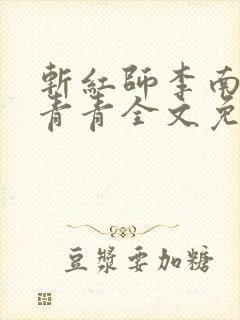 斬紅師李南
青青全文免
豆漿要加糖